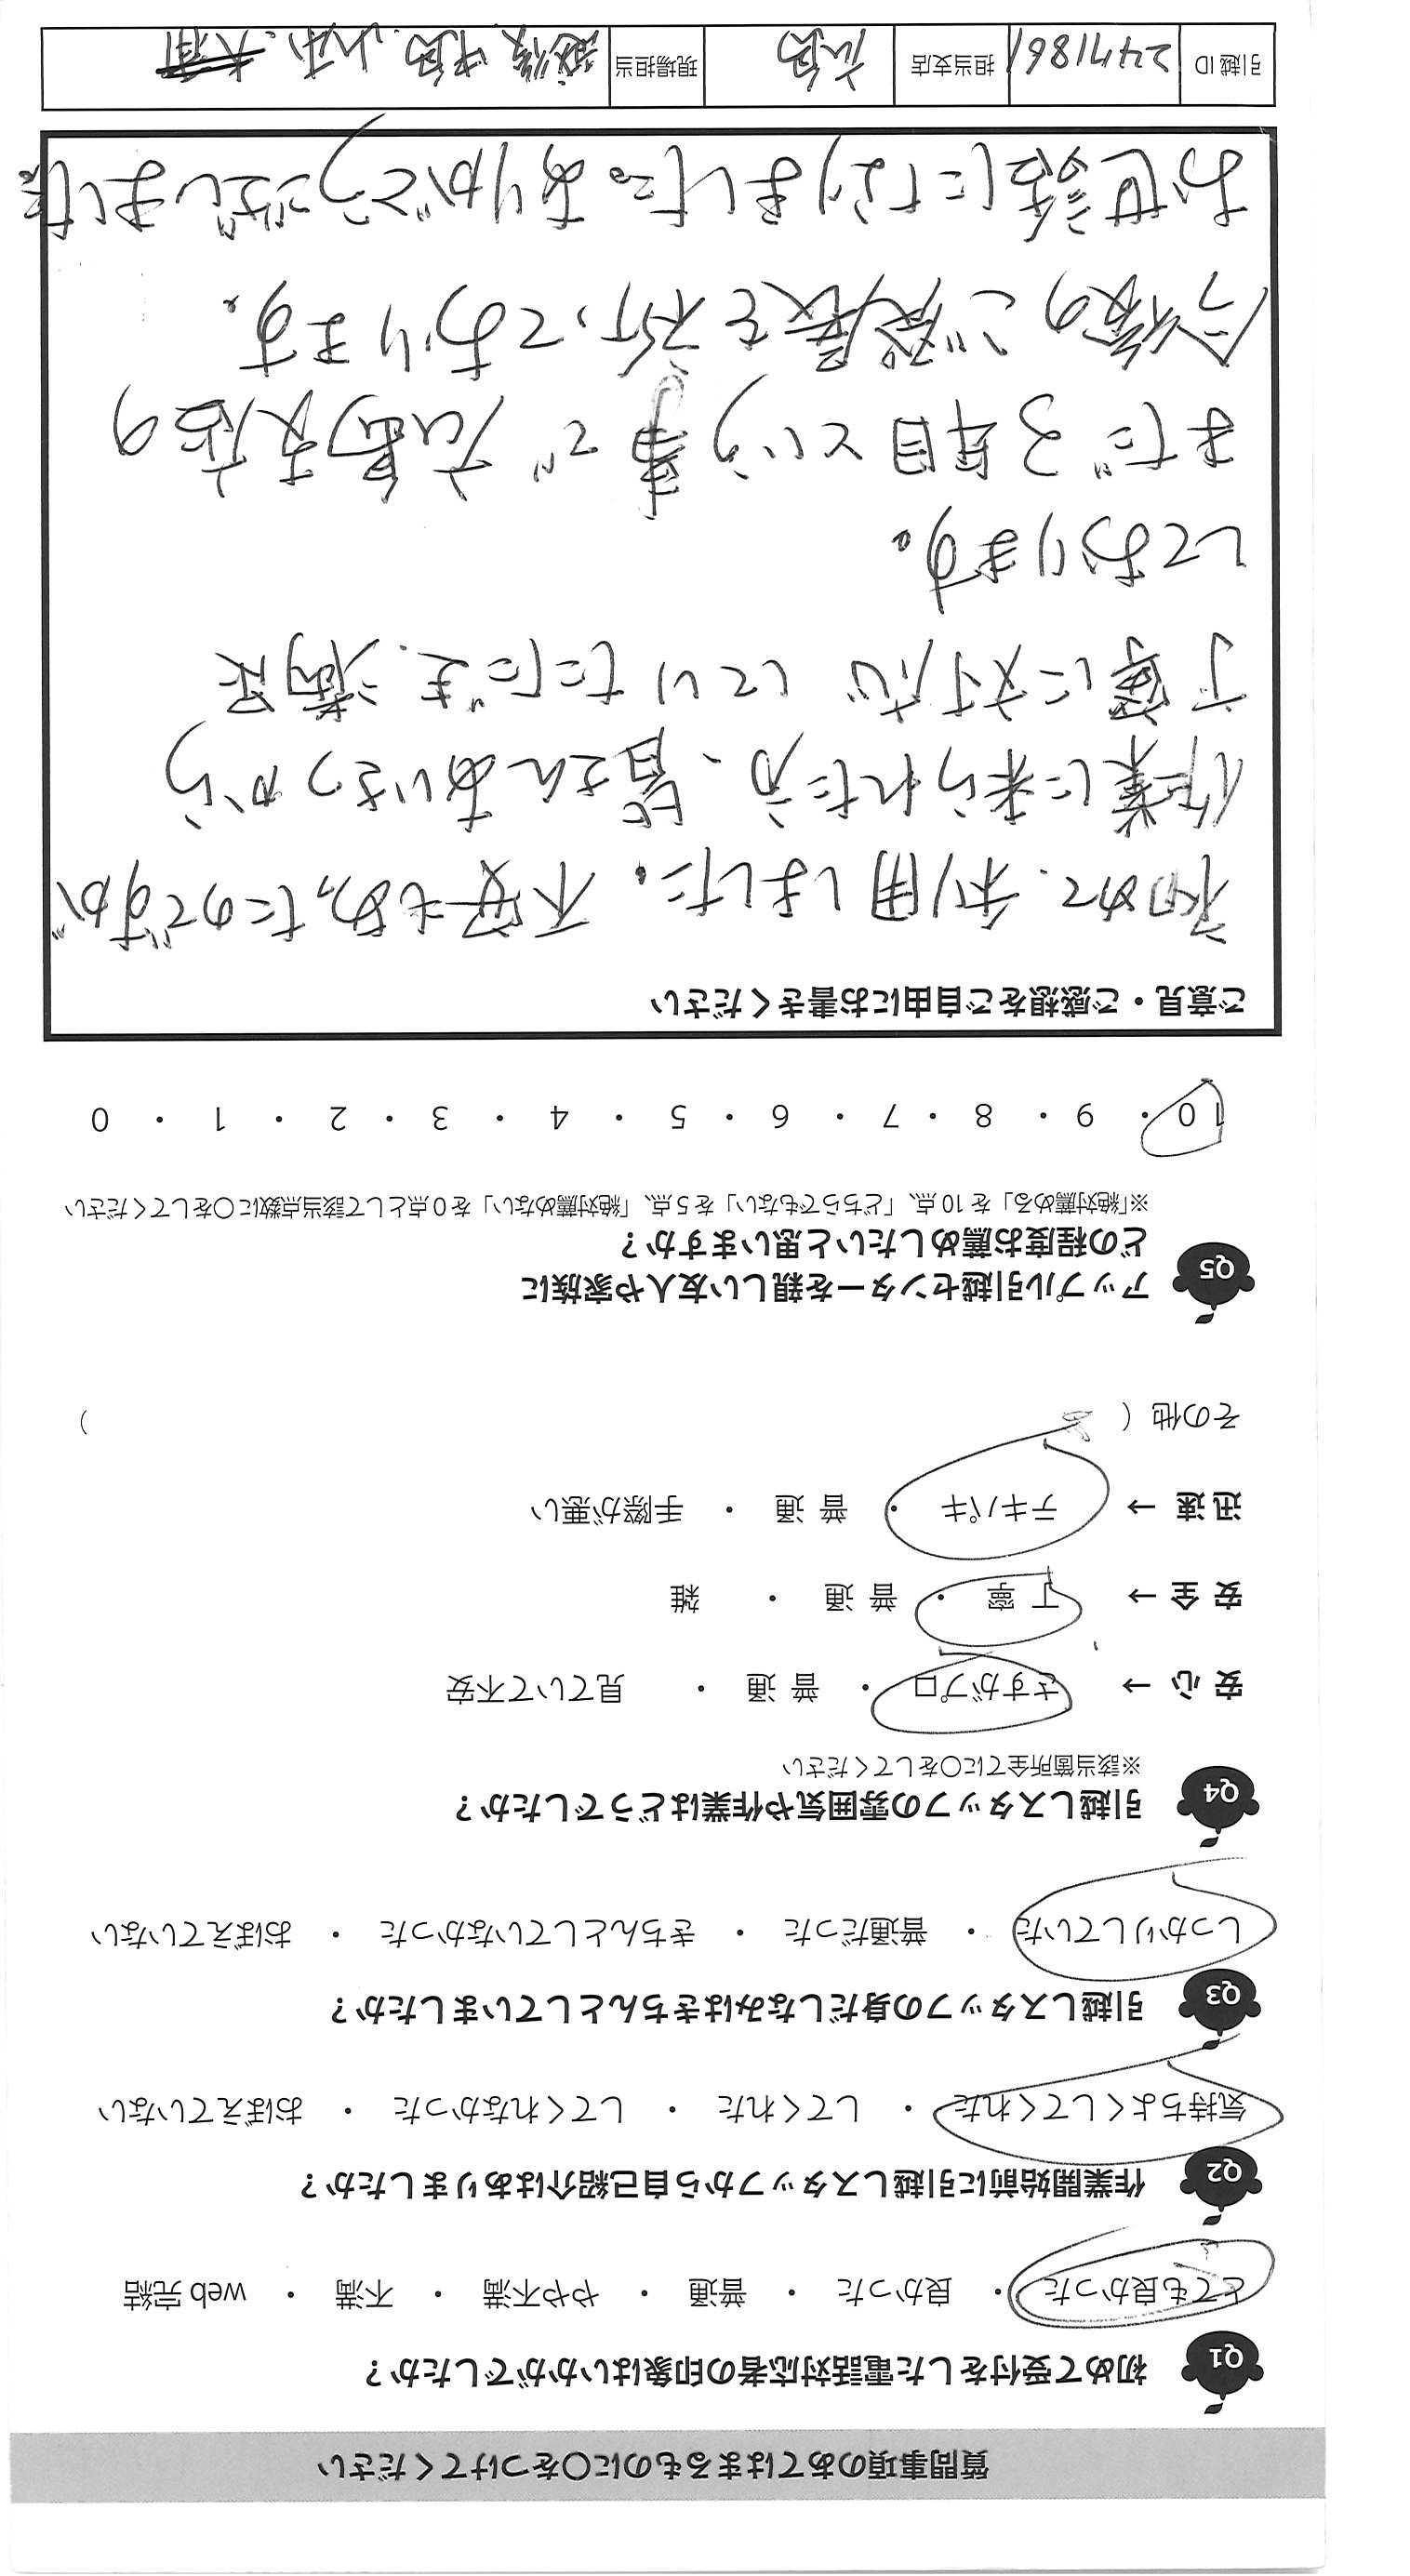 質問事項のあてはまるものに○をつけてください
Q1 初めて受付をした電話対応者の印象はいかがでしたか？
とても良かった ・ 良かった ・ 普通 ・ やや不満 ・ 不満 ・ web 完結
Q2 作業開始前に引越しスタッフから自己紹介はありましたか？
気持ちよくしてくれた ・ してくれた ・ してくれなかった ・ おぼえていない
Q3 引越しスタッフの身だしなみはきちんとしていましたか？
しっかりしていた ・ 普通だった ・ きちんとしていなかった ・ おぼえていない
Q4 引越しスタッフの雰囲気や作業はどうでしたか？
※該当箇所全てに○をしてください
安心 → さすがプロ ・ 普通 ・ 見ていて不安
安全 → 丁寧 ・ 普通 ・ 雑
迅速 → テキパキ ・ 普通 ・ 手際が悪い
その他（ ）
Q5 アップル引越センターを親しい友人や家族に
どの程度お薦めしたいと思いますか？
※「絶対薦める」を 10 点、「どちらでもない」を 5 点、「絶対薦めない」を 0 点として該当点数に○をしてください
10 ・ 9 ・ 8 ・ 7 ・ 6 ・ 5 ・ 4 ・ 3 ・ 2 ・ 1 ・ 0
ご意見・ご感想をご自由にお書きください
初めて利用しました。不安もあったのですが
作業に来られた方、皆さんあいさつから
丁寧に対応していただき満足
しております。
まだ3年目という事で広島支店の
今後のご発展を祈っております。
お世話になりました。ありがとうございました。
引越 ID 2471861 担当支店 広島 現場担当 中島、山本、